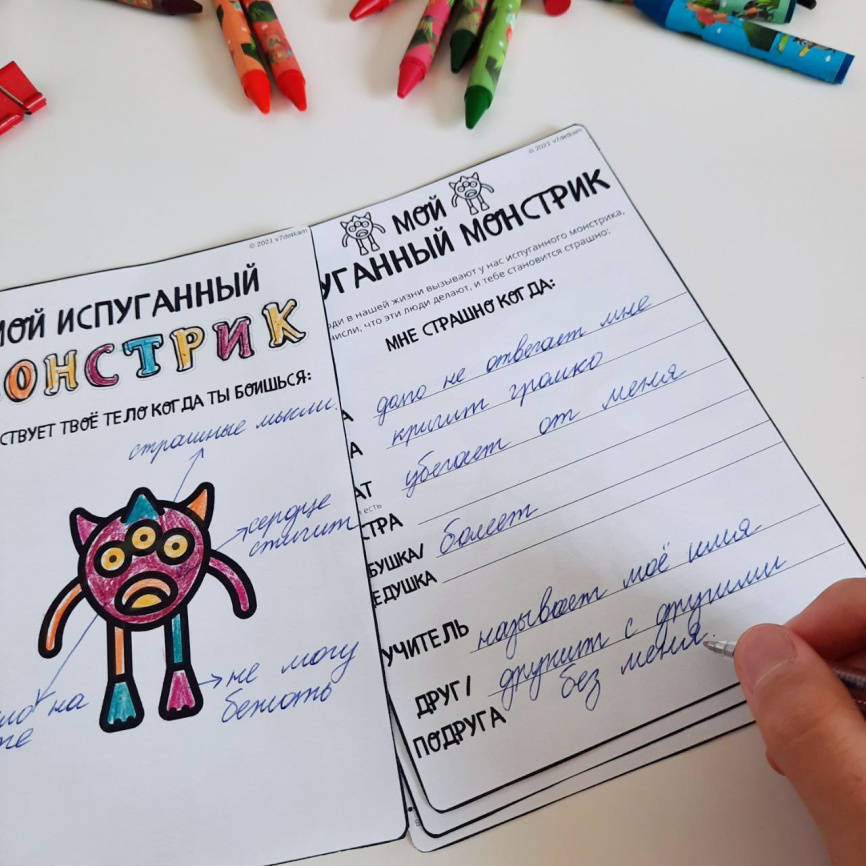 © 2021 v7detkam
МОЙ ИСПУГАННЫЙ
ОНСТРИК
СТВУЕТ ТВОЁ ТЕЛО КОГДА ТЫ БОИШЬСЯ:
страшные мысли.
сердце
стучит
не могу
бежать
на
© 2021 v7detkam
МОЙ
УГАННЫЙ МОНСТРИК
юди в нашей жизни вызывают у нас испуганного монстрика,
числи, что эти люди делают, и тебе становится страшно:
МНЕ СТРАШНО КОГДА:
А долго не отвечает мне
А кричит громко
АТ убегает от меня
есть
СТРА
БУШКА/ болеет
ЕДУШКА
УЧИТЕЛЬ называет моё имя
ДРУГ/ дружит с другими
ПОДРУГА без меня.